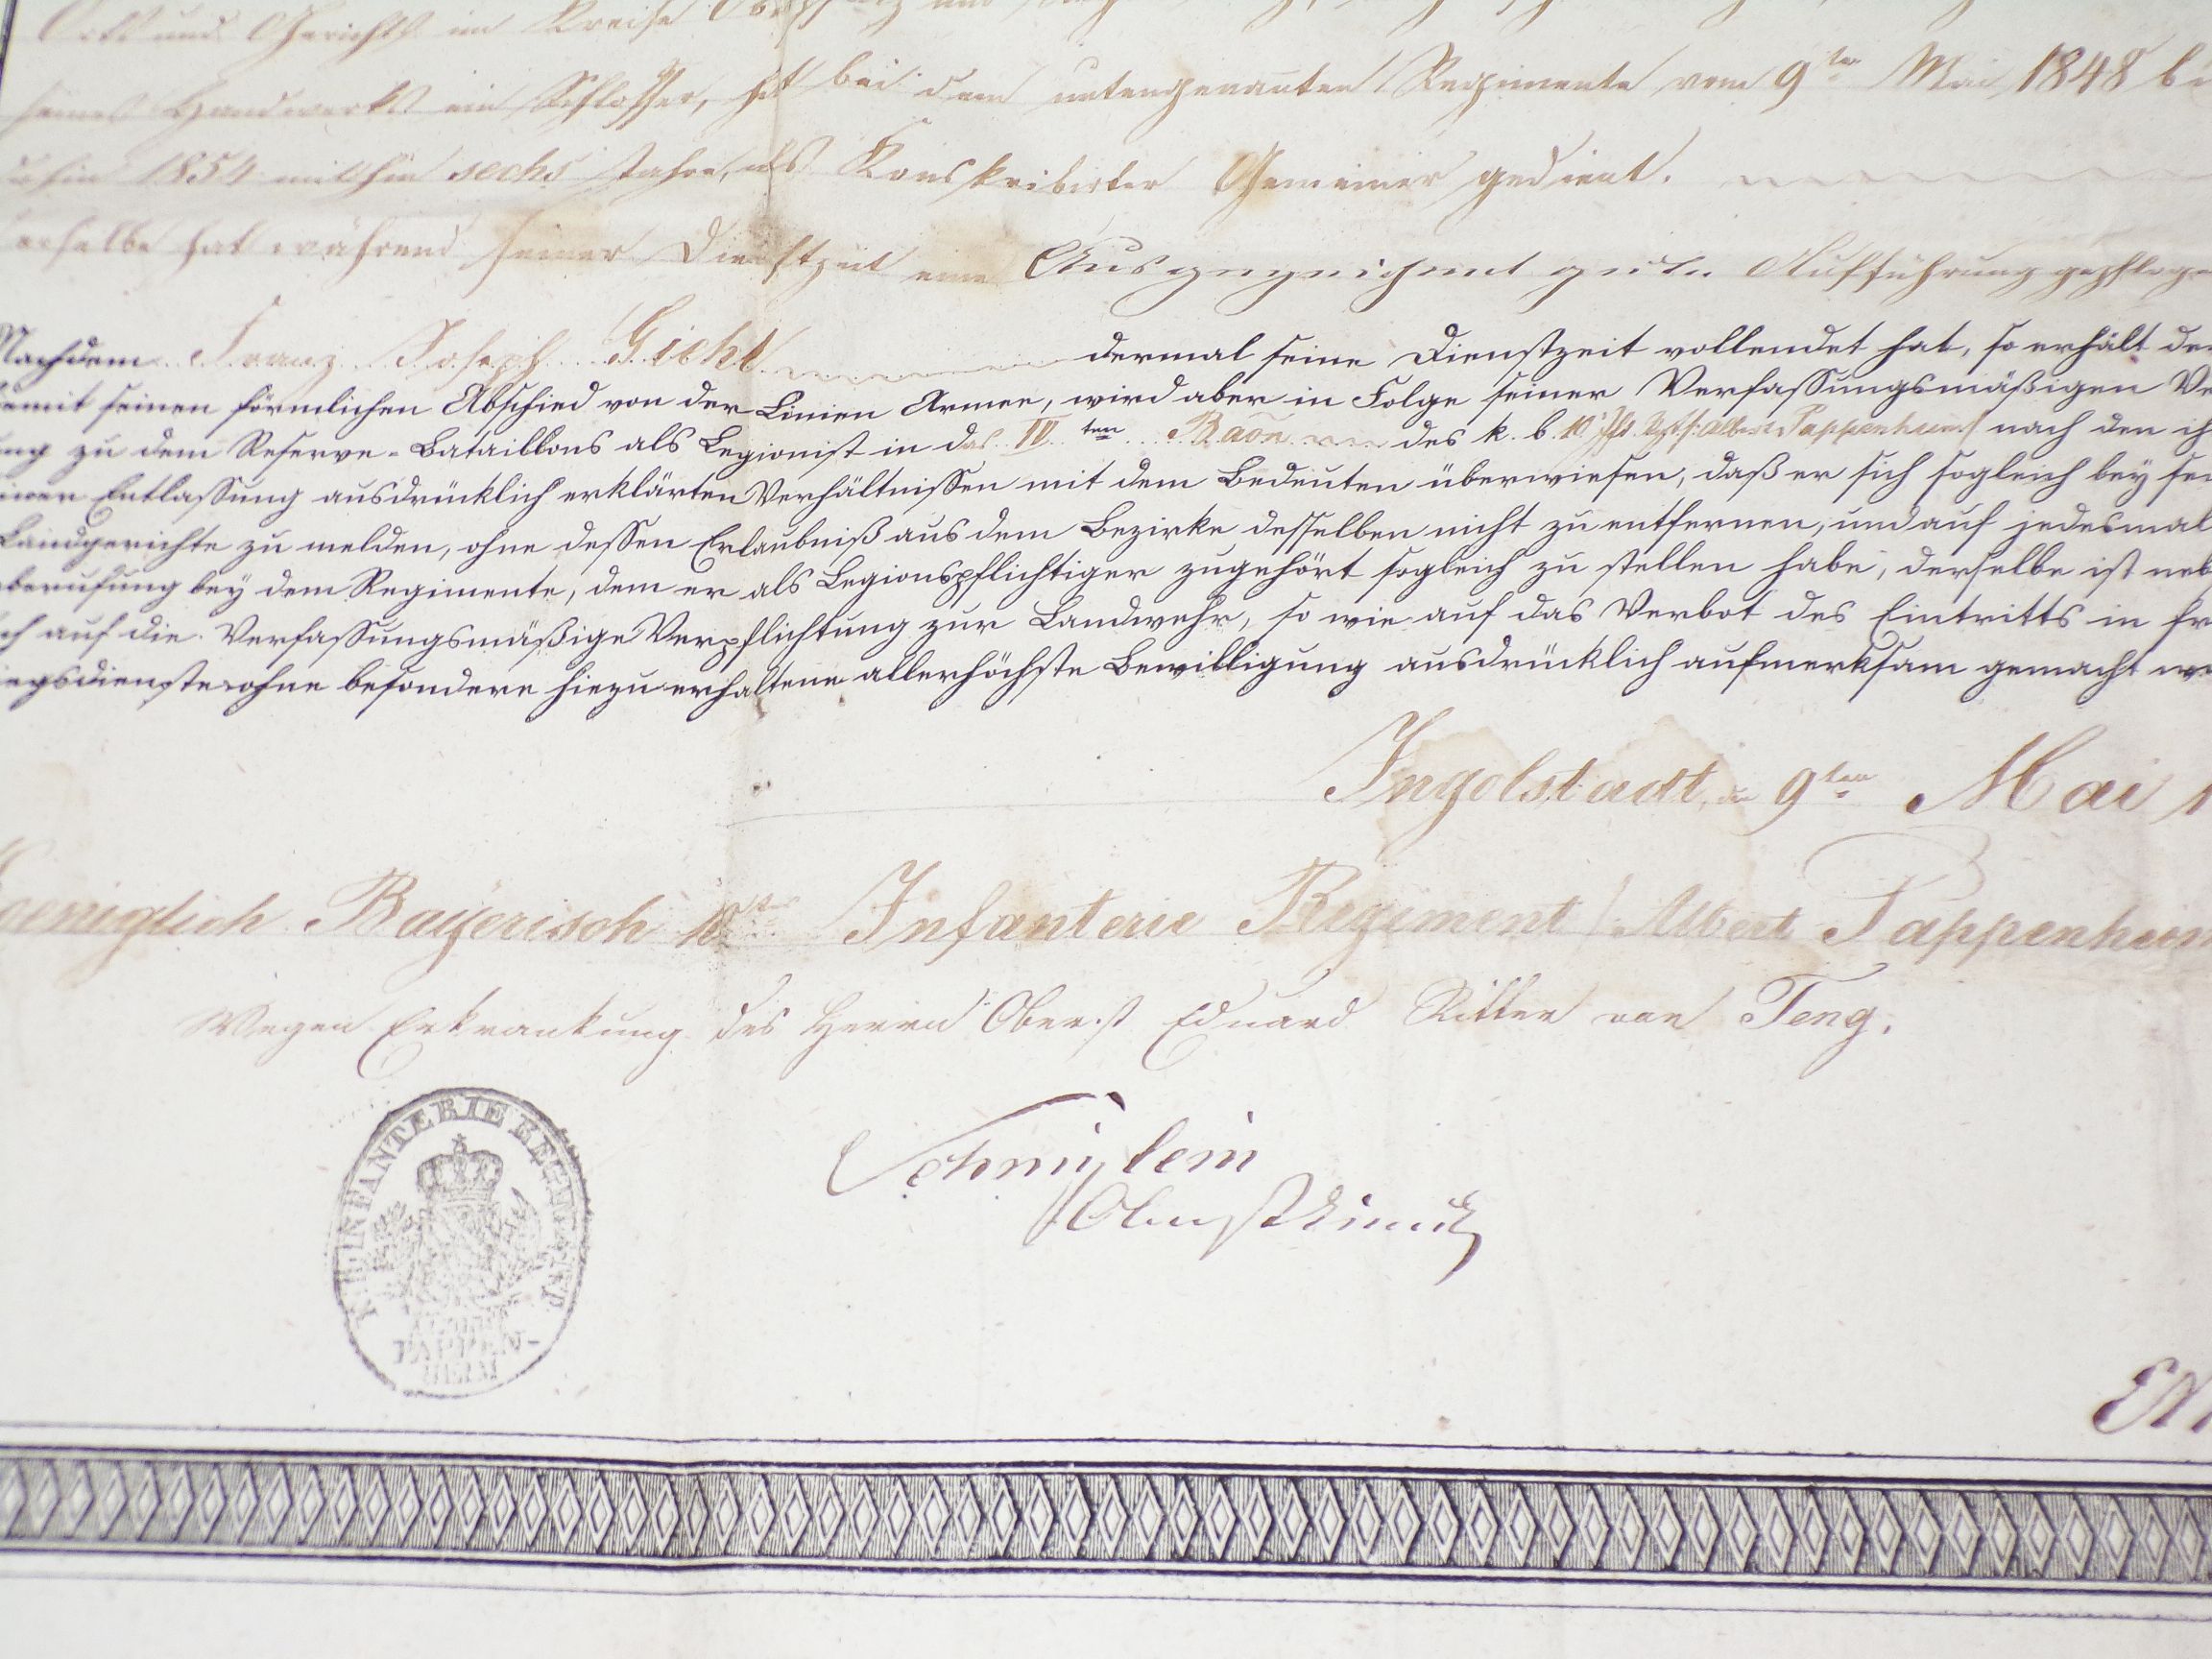 und Gerichts im Kreise
seines Handwerks ein Schlosser, hat bei dem untengenannten Regimente vom 9ten Mai 1848 bi
1854 mithin sechs Jahre, als Konskribirter Gemeiner gedient.
erselbe hat während seiner Dienstzeit eine Ausgezeichnet gute Aufführung gepflog
Nachdem Franz Joseph Gicht dermal seine Dienstzeit vollendet hat, so erhält de
emit seinen förmlichen Abschied von der Linien Armee, wird aber in Folge seiner Verfassungsmäßigen Ve
ng zu dem Reserve-Bataillons als Legionist in das IV ten Baon des k. b. 10. Inft. Rgt. Albert Pappenheim nach den ih
einer Entlassung ausdrücklich erklärten Verhältnissen mit dem Bedeuten überwiesen, daß er sich sogleich bey sei
Landgerichte zu melden, ohne dessen Erlaubniß aus dem Bezirke desselben nicht zu entfernen, und auf jedesmal
berufung bey dem Regimente, dem er als Legionspflichtiger zugehört sogleich zu stellen habe, derselbe ist neb
ch auf die Verfassungsmäßige Verpflichtung zur Landwehr, so wie auf das Verbot des Eintritts in fr
iegsdienste ohne besondere hiezu erhaltene allerhöchste Bewilligung ausdrücklich aufmerksam gemacht w
Ingolstadt, den 9ten Mai 1
oeniglich Bayerisch 10tes Infanterie Regiment Albert Pappenheim
Wegen Erkrankung des Herrn Oberst Eduard Ritter von Teng.
INFANTERIE REGIMENT
PAPPEN-
HEIM
Oberstlieut